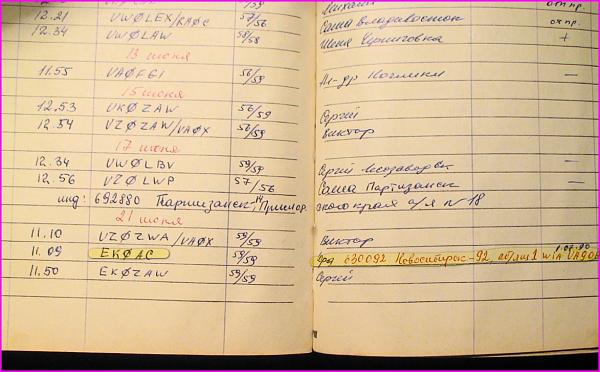 12.21 UWØLEX/RAØC 57/56 Саша Владивосток отпр.
12.34 UWØLAW 58/58 Женя Черниговка +
13 июня
11.55 VAØFGI 56/59 Ал-др —
15 июня
12.53 UKØZAW 56/59 Сергей
12.54 VZØZAW/VAØX 56/59 Виктор
17 июня
12.34 UWØLBV 59/59 Сергей Лесозаводск —
12.56 VZØLWP 57/56 Саша Партизанск —
инд: 692880 Партизанск, Примор. ского края а/я №18
21 июня
11.10 VZØZWA/VAØX 59/59 Виктор
11.09 EKØAC 59/59 630092 Новосибирск-92, 1 WIA
11.50 EKØZAW 59/59 Сергей